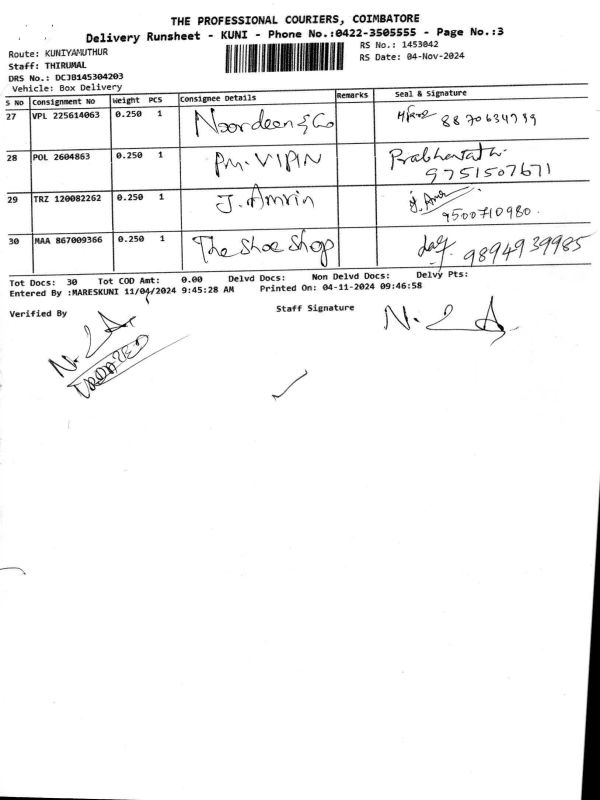 THE PROFESSIONAL COURIERS, COIMBATORE
Delivery Runsheet - KUNI - Phone No.:0422-3505555 - Page No.:3
Route: KUNIYAMUTHUR
RS No.: 1453042
Staff: THIRUMAL
RS Date: 04-Nov-2024
DRS No.: DCJB145304203
Vehicle: Box Delivery
S No Consignment No Weight PCS Consignee Details Remarks Seal & Signature
27 VPL 225614063 0.250 1 Noordeen & Co
28 POL 2604863 0.250 1 PM. VIPIN Prabhavathi
9751507671
29 TRZ 120082262 0.250 1 J. Amrin
9500710980.
30 MAA 867009366 0.250 1 The Shoe Shop 9894939985
Tot Docs: 30 Tot COD Amt: 0.00 Delvd Docs: Non Delvd Docs: Delvy Pts:
Entered By :MARESKUNI 11/04/2024 9:45:28 AM Printed On: 04-11-2024 09:46:58
Verified By Staff Signature
UPDATED